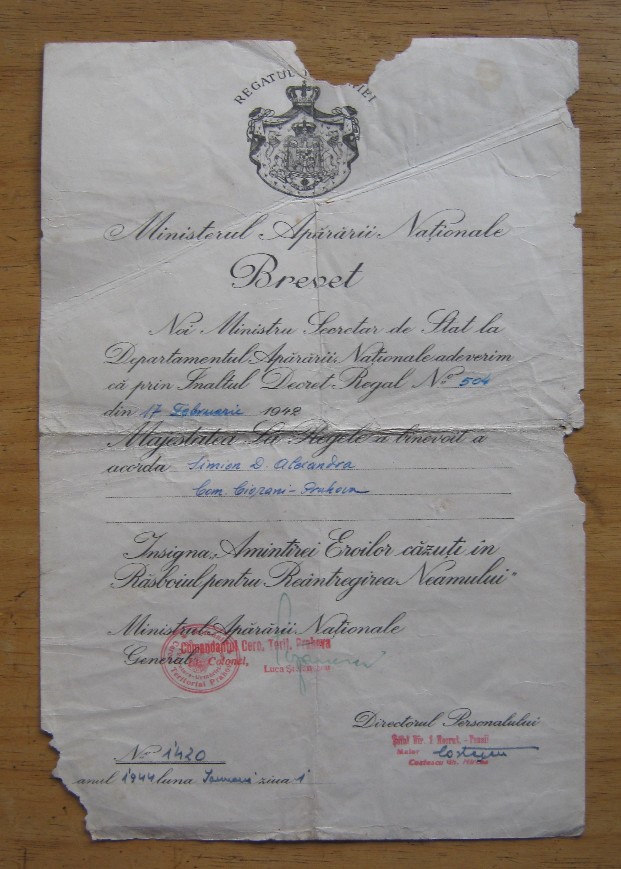 REGATUL
Ministerul Apărării Naționale
Brevet
Noi Ministru Secretar de Stat la
Departamentul Apărării Naționale adeverim
că prin Înaltul Decret-Regal No 504
din 17 Februarie 1942
Majestatea Sa Regele a binevoit a
acorda Simion D. Alexandra
Com. Ciorani-Prahova
„Insigna Amintirei Eroilor căzuți în
Răsboiul pentru Reântregirea Neamului"
Ministrul Apărării Naționale
Comandantul Cerc. Terit. Prahova
General, Colonel,
Luca
Teritorial
Directorul Personalului
Șeful Bir. 1 Recrut. - Pensii
Maior
Costescu Gh.
No 1420
anul 1944 luna Ianuarie ziua 1